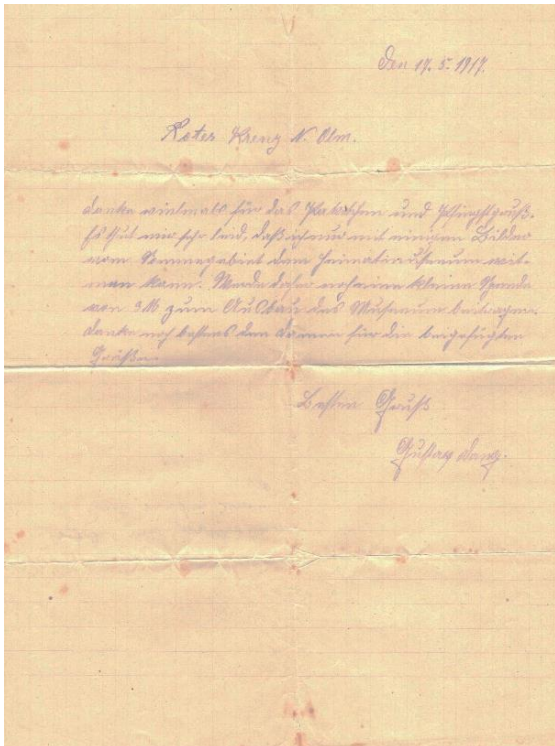 Den 17. 5. 1917.
Rotes Kreuz N. Olm.
Danke vielmals für das Paketchen und Pfingstgruß.
Es thut mir sehr leid, daß ich nur mit einigen Bilder
vom Sommegebiet dem Heimatmuseum
kann. Werde daher noch eine kleine Spende
von 3 M zum Ausbau des Museums beitragen.
Danke noch bestens den Damen für die beigefügten
Grüßen.
Besten Gruß
Gustav